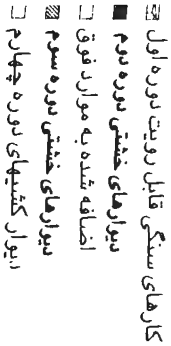 کارهای سنگی قابل رویت دوره اول
دیوارهای خشتی دوره دوم
اضافه شده به موارد فوق
دیوارهای خشتی دوره سوم
دیوار کشیهای دوره چهارم